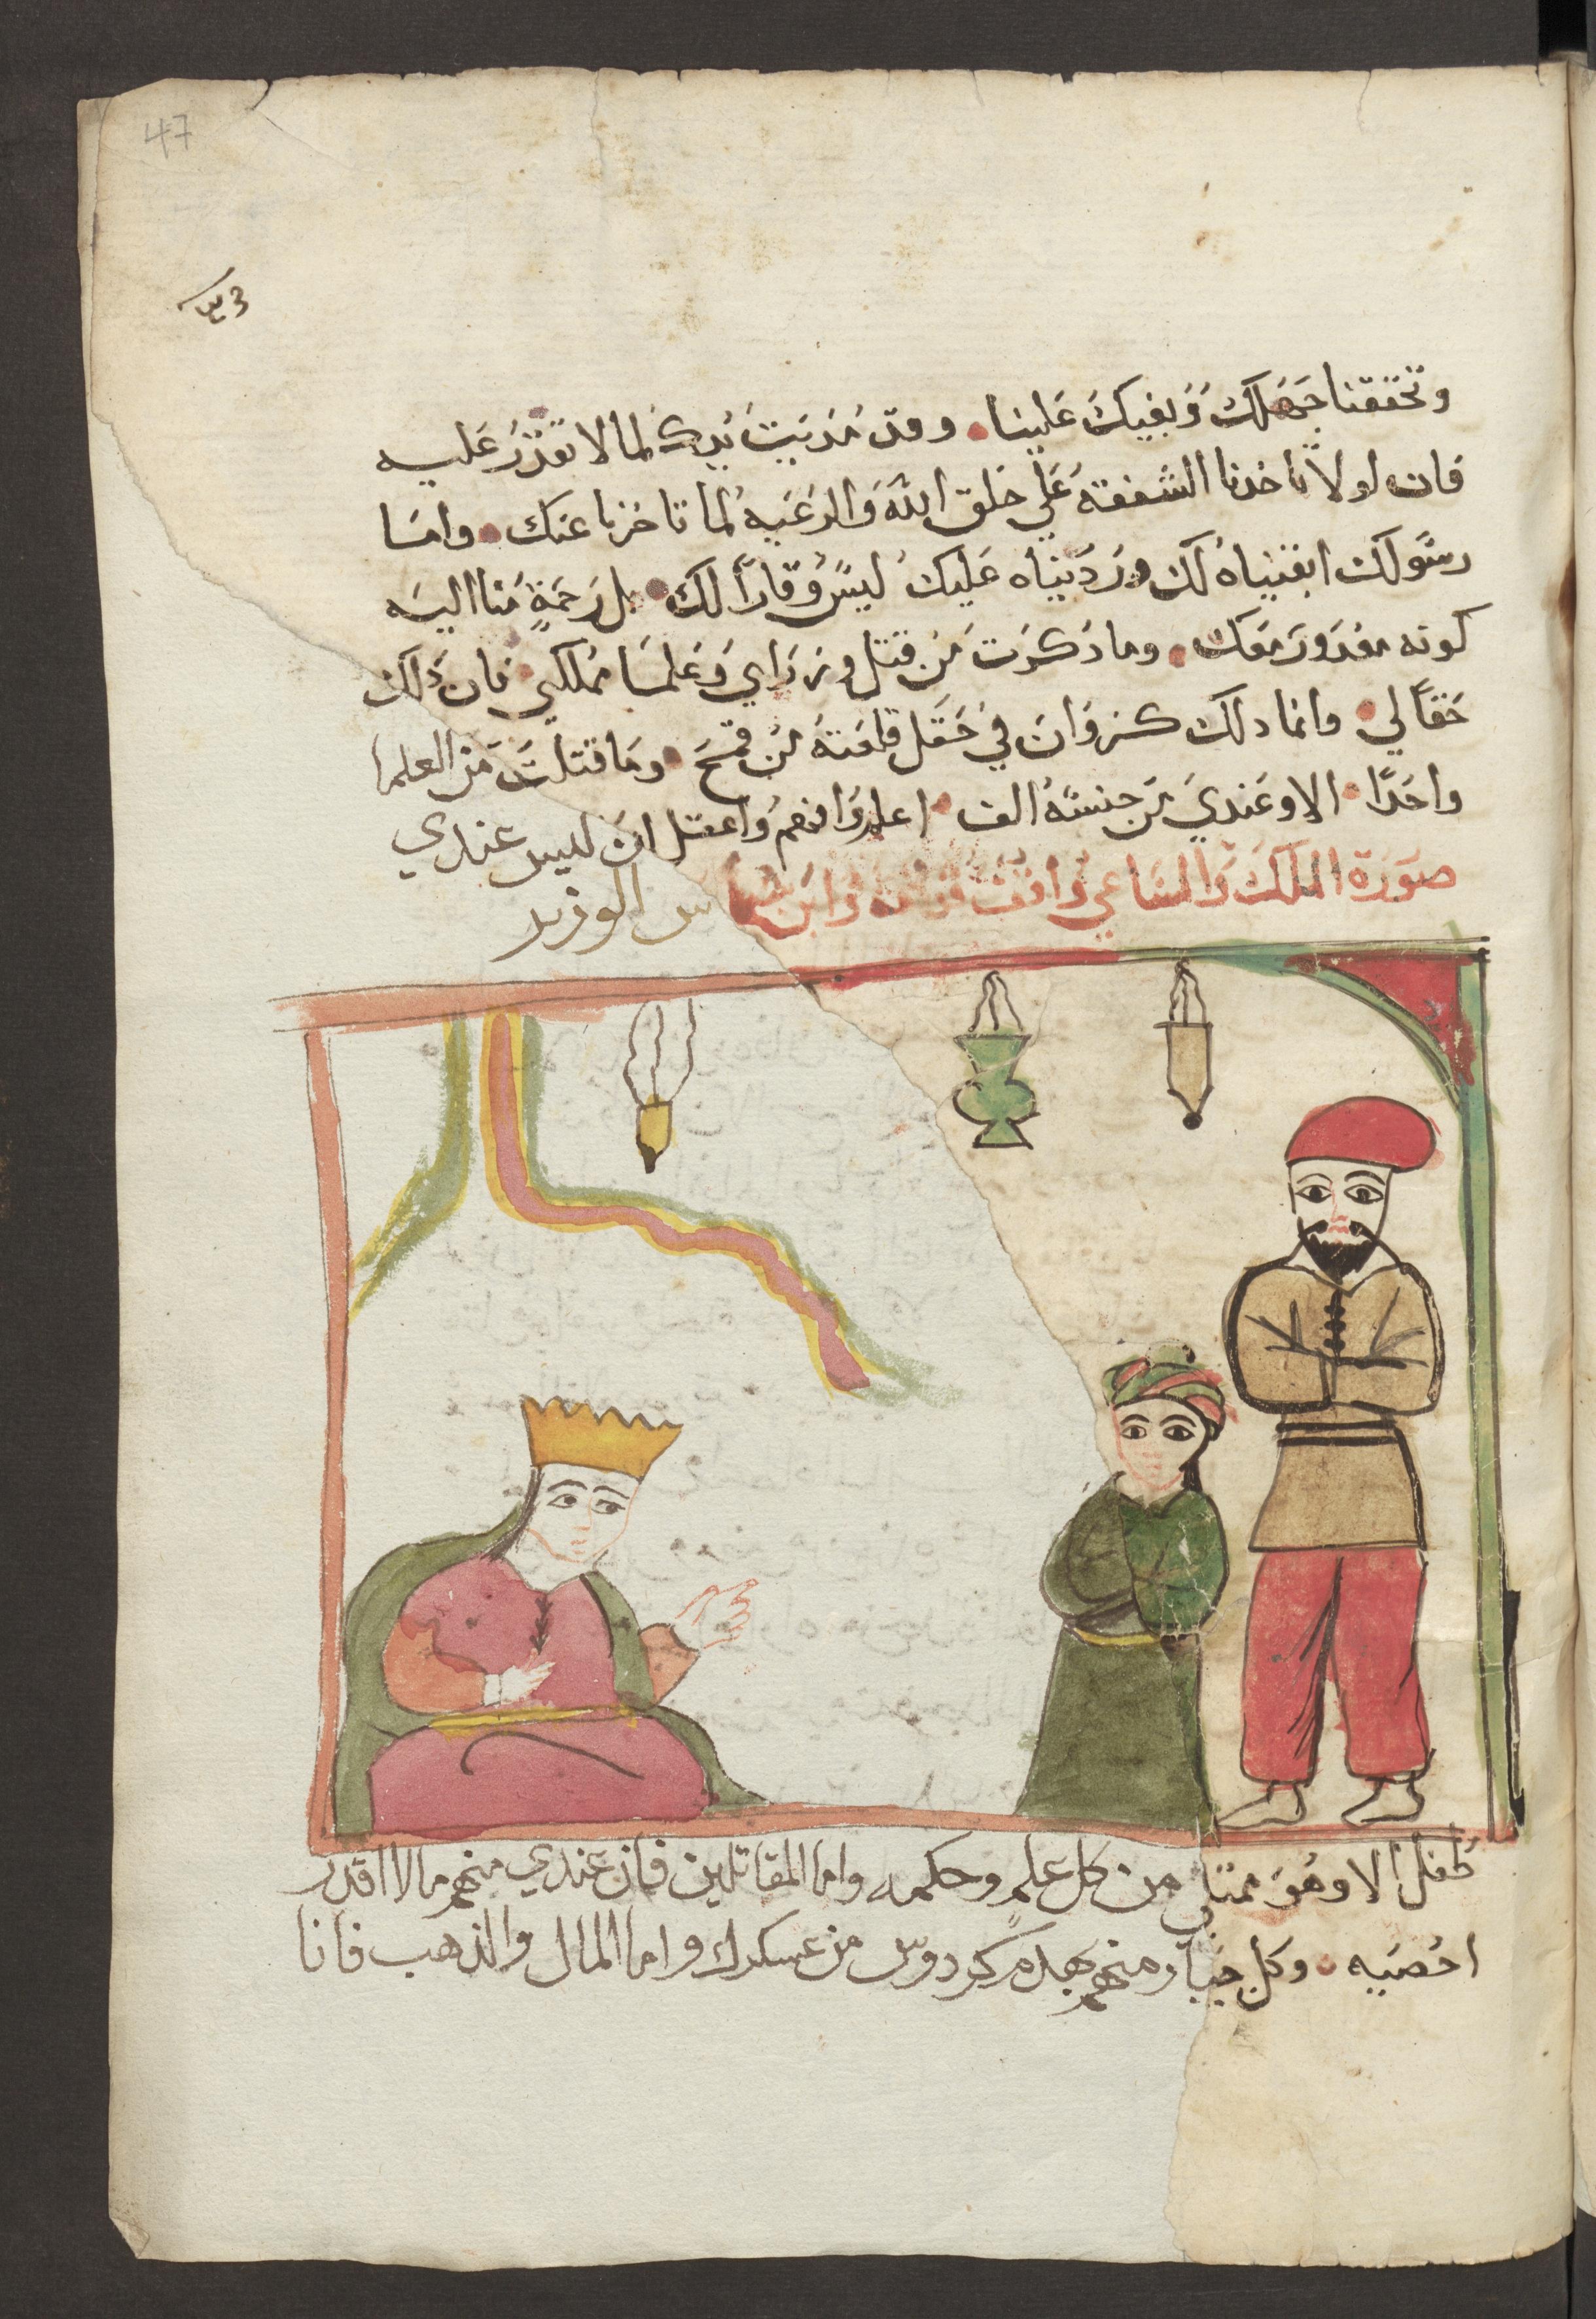 47
وتحققنا جهلك وبغيك علينا. وقد مديت يدك لما لا تقدر عليه
فان لولا تاخدنا الشفقة علي خلق الله والرعيه لما تاخرنا عنك. واما
رسولك ابقيناه لك ورديناه عليك ليس وقارًا لك. بل رحمةٍ منا اليه
كونه مغدور معك. وما دكرت من قتل وزراي وعلما مملكتي. فان دلك
حقًا لي. وانما دلك كزوان في حقل قلعته من قمح. وما قتلت من العلما
واحدًا. الا وعندي من جنسه الف. اعلم وافهم واعقل ان ليس عندي
صورة الملك والساعي واقف وابن شماس الوزير
طفل الا وهو ممتلي من كل علم وحكمه واما المقاتلين فان عندي منهم ما لا اقدر
احصيه. وكل جبار منهم يهدم كردوس من عسكرك واما المال والذهب فانا